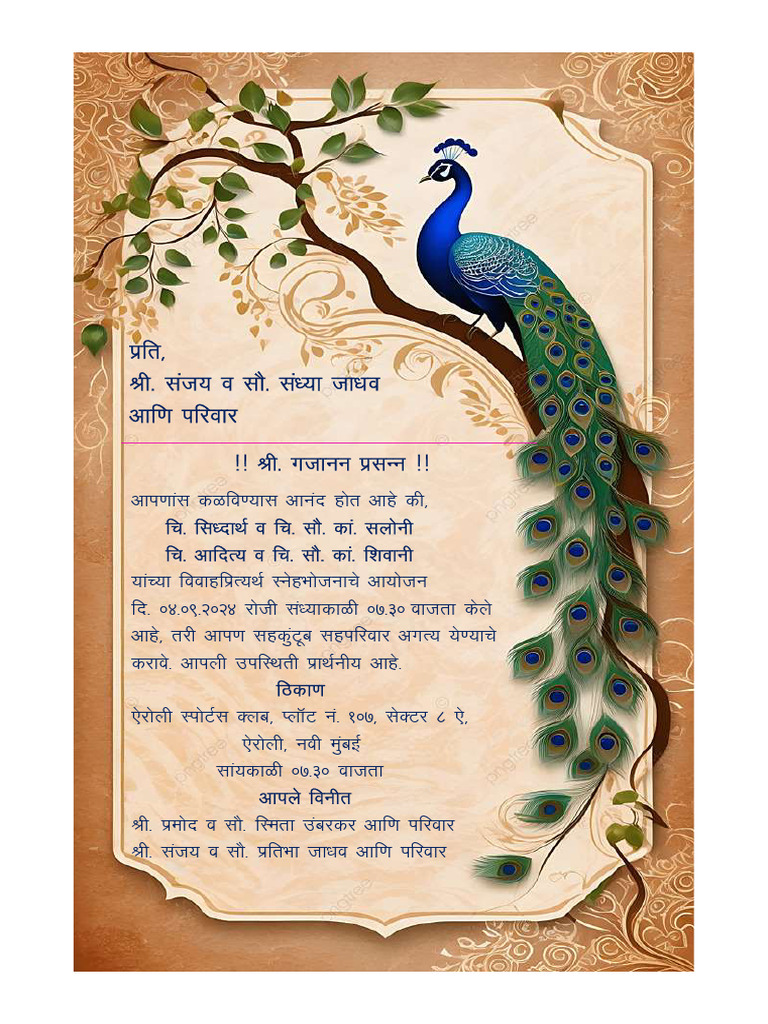 प्रति,
श्री. संजय व सौ. संध्या जाधव
आणि परिवार
!! श्री. गजानन प्रसन्न !!
आपणांस कळविण्यास आनंद होत आहे की,
चि. सिध्दार्थ व चि. सौ. कां. सलोनी
चि. आदित्य व चि. सौ. कां. शिवानी
यांच्या विवाहप्रित्यर्थ स्नेहभोजनाचे आयोजन
दि. ०४.०९.२०२४ रोजी संध्याकाळी ०७.३० वाजता केले
आहे, तरी आपण सहकुंटूब सहपरिवार अगत्य येण्याचे
करावे. आपली उपस्थिती प्रार्थनीय आहे.
ठिकाण
ऐरोली स्पोर्टस क्लब, प्लॉट नं. १०७, सेक्टर ८ ऐ,
ऐरोली, नवी मुंबई
सांयकाळी ०७.३० वाजता
आपले विनीत
श्री. प्रमोद व सौ. स्मिता उंबरकर आणि परिवार
श्री. संजय व सौ. प्रतिभा जाधव आणि परिवार
pngtree